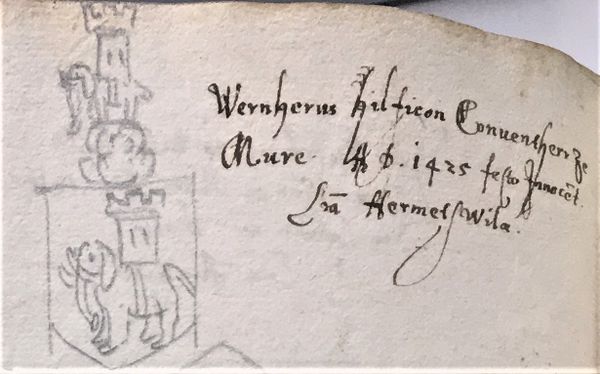 Wernherus Hilficon Conventherr ze
Mure. A͞o. 1425 festo Innoce͞t.
Lr͞a Hermetswila.